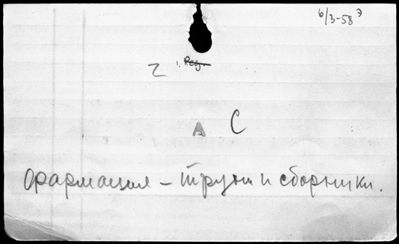 6/3-58
2 1. Рег.
A C
Фармация – труды и сборники.